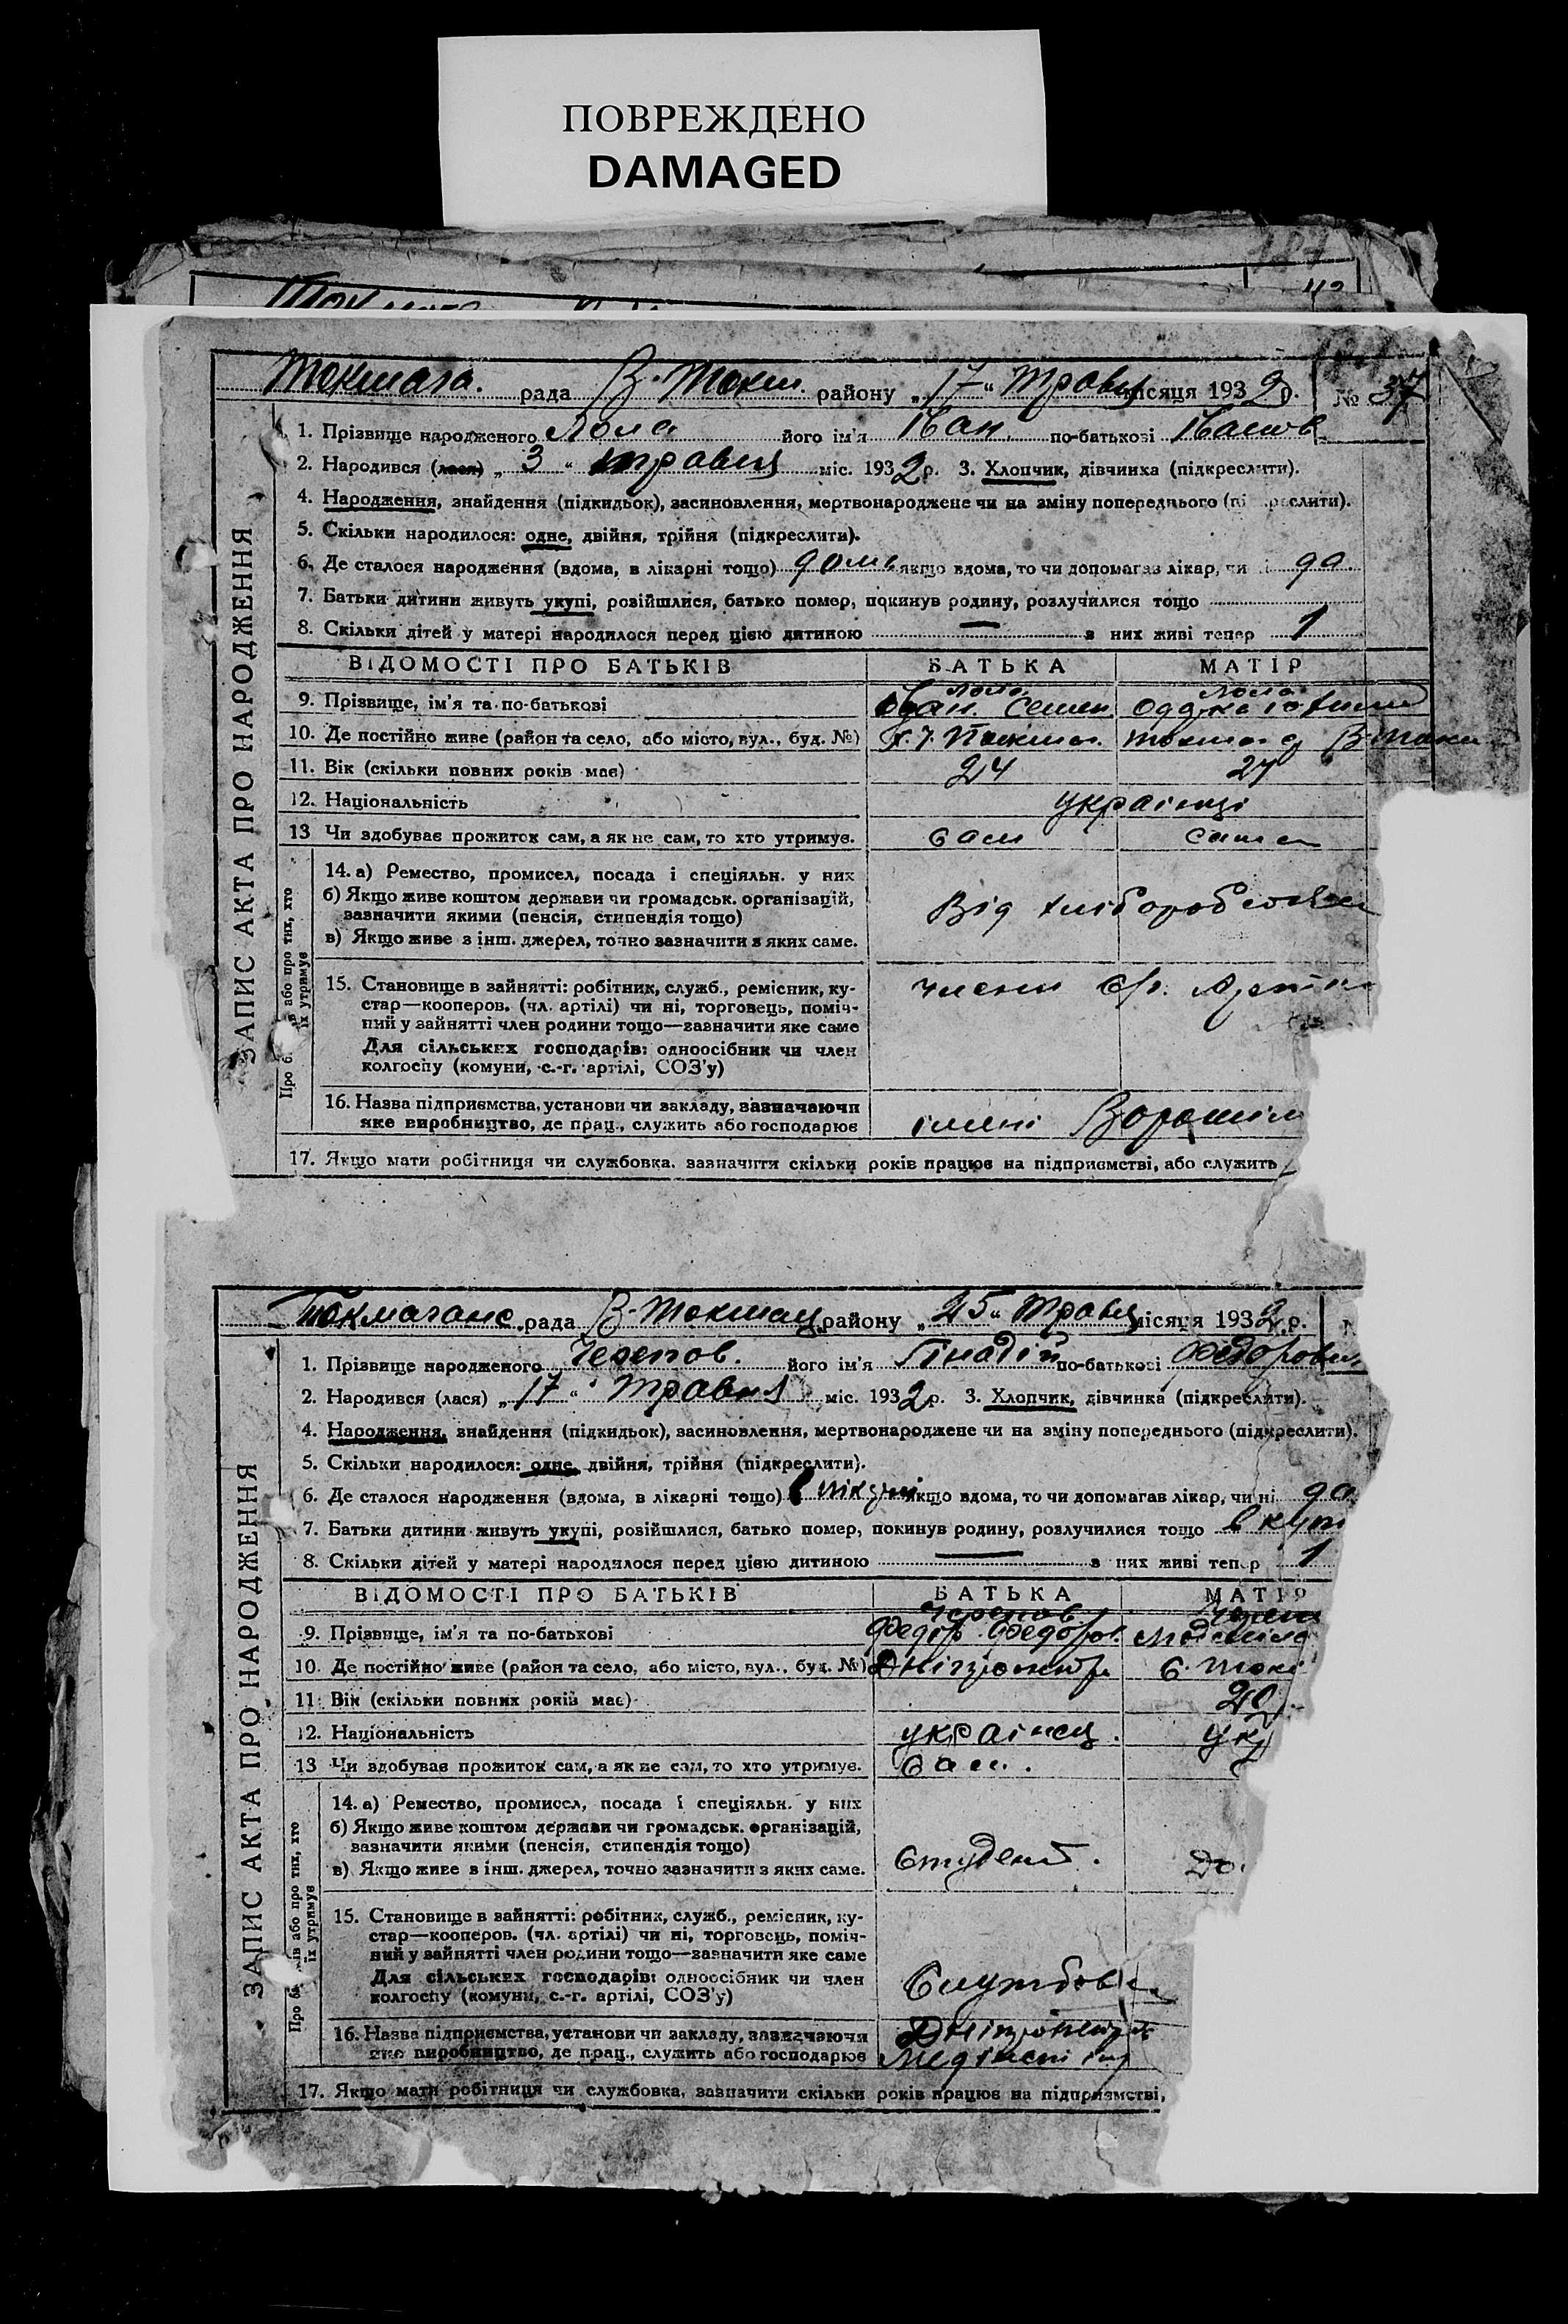 ПОВРЕЖДЕНО
DAMAGED
187
112
рада В. Токм. району „17“ Травня місяця 1932 р. № 37
ЗАПИС АКТА ПРО НАРОДЖЕННЯ
1. Прізвище народженого Лола його ім'я Іван по-батькові Іванов
2. Народився (лася) „3“ травня міс. 1932 р. 3. Хлопчик, дівчинка (підкреслити).
4. Народження, знайдення (підкидьок), засиновлення, мертвонароджене чи на зміну попереднього (пі реслити).
5. Скільки народилося: одне, двійня, трійня (підкреслити).
6. Де сталося народження (вдома, в лікарні тощо) дома якщо вдома, то чи допомагав лікар, чи і да
7. Батьки дитини живуть укупі, розійшлися, батько помер, покинув родину, розлучилися тощо
8. Скільки дітей у матері народилося перед цією дитиною — з них живі тепер 1
ВІДОМОСТІ ПРО БАТЬКІВ БАТЬКА МАТІР
9. Прізвище, ім'я та по-батькові Лола Іван Семен Лола
10. Де постійно живе (район та село, або місто, вул., буд. №)
11. Вік (скільки повних років має) 24 27
12. Національність українці
13 Чи здобуває прожиток сам, а як не сам, то хто утримує. сам сама
Про б в або про тих, хто їх утримує
14. а) Ремество, промисел, посада і спеціяльн. у них
б) Якщо живе коштом держави чи громадськ. організацій,
зазначити якими (пенсія, стипендія тощо) Від хліборобства
в) Якщо живе з інш. джерел, точно зазначити з яких саме.
15. Становище в зайнятті: робітник, служб., ремісник, ку- члени с/г. Артіл
стар—кооперов. (чл. артілі) чи ні, торговець, поміч-
ний у зайнятті член родини тощо—зазначити яке саме
Для сільських господарів: одноосібник чи член
колгоспу (комуни, с.-г. артілі, СОЗ'у)
16. Назва підприємства, установи чи закладу, зазначаючи
яке виробництво, де прац., служить або господарює імені Ворошил
17. Якщо мати робітниця чи службовка, зазначити скільки років працює на підприємстві, або служить
Токмачанс. рада В-Токмац. району „25“ Травня місяця 1932 р. №
ЗАПИС АКТА ПРО НАРОДЖЕННЯ
1. Прізвище народженого Черепов. його ім'я Гінадій по-батькові Федорович
2. Народився (лася) „17“ Травня міс. 1932 р. 3. Хлопчик, дівчинка (підкреслити).
4. Народження, знайдення (підкидьок), засиновлення, мертвонароджене чи на зміну попереднього (підкреслити).
5. Скільки народилося: одне, двійня, трійня (підкреслити).
6. Де сталося народження (вдома, в лікарні тощо) в лікарні якщо вдома, то чи допомагав лікар, чи ні да
7. Батьки дитини живуть укупі, розійшлися, батько помер, покинув родину, розлучилися тощо вкупі
8. Скільки дітей у матері народилося перед цією дитиною — з них живі тепер 1
ВІДОМОСТІ ПРО БАТЬКІВ БАТЬКА МАТІР
9. Прізвище, ім'я та по-батькові Черепов Федір Федоров. Череп
10. Де постійно живе (район та село, або місто, вул., буд. №) Дніпропетр. с. Токм
11. Вік (скільки повних років має) 20
12. Національність українец. Укр
13 Чи здобуває прожиток сам, а як не сам, то хто утримує. Сам.
Про б ків або про тих, хто їх утримує
14. а) Ремество, промисел, посада і спеціяльн. у них
б) Якщо живе коштом держави чи громадськ. організацій,
зазначити якими (пенсія, стипендія тощо)
в) Якщо живе в інш. джерел, точно зазначити з яких саме. Студент. До
15. Становище в зайнятті: робітник, служб., ремісник, ку-
стар—кооперов. (чл. артілі) чи ні, торговець, поміч-
ний у зайнятті член родини тощо—зазначити яке саме
Для сільських господарів: одноосібник чи член
колгоспу (комуни, с.-г. артілі, СОЗ'у) Службов
16. Назва підприємства, установи чи закладу, зазначаючи Дніпропетр
яке виробництво, де прац., служить або господарює Медічені інс
17. Якщо мати робітниця чи службовка, зазначити скільки років працює на підприємстві,